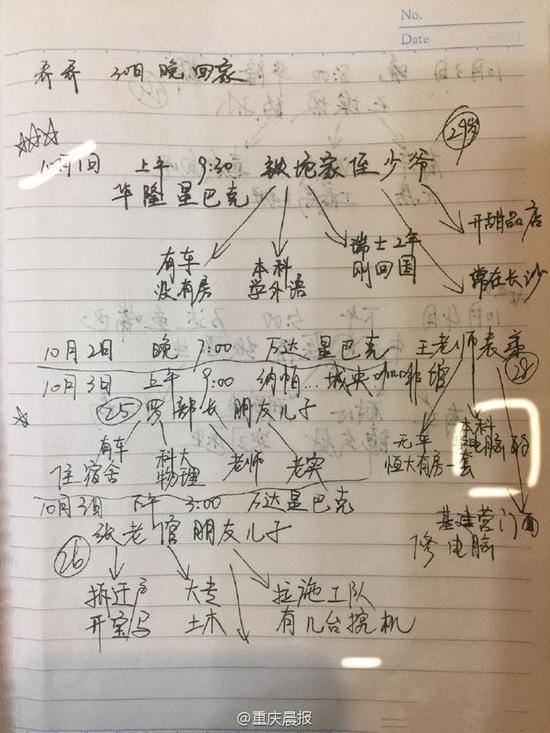 No.
Date
乔乔 30日晚回家
29岁
10月1日 上午 9:30 铁坨家侄少爷
华隆星巴克
有车
没有房
本科
学外语
瑞士2年
刚回国
开甜品店
常在长沙
10月2日 晚 7:00 万达星巴克 王老师表弟
28
10月3日 上午 9:00 纳帕...城央咖啡馆
25 罗部长朋友儿子
有车
住宿舍
科大
物理
老师
老实
无车
恒大有房一套
本科
电脑
基建营门面
修电脑
10月3日 下午 3:00 万达星巴克
26 张老倌朋友儿子
拆迁户
开宝马
大专
土木
拉施工队
有几台挖机
@重庆晨报